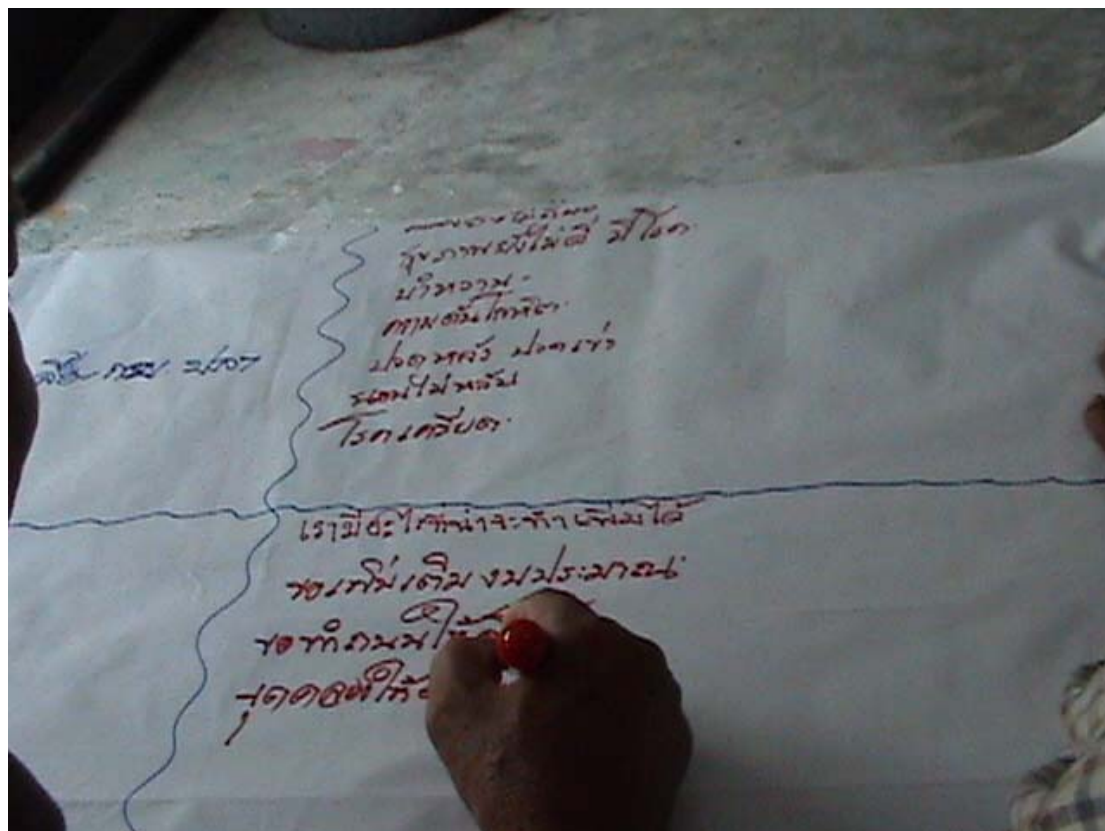 สุขภาพยังไม่ดี มีโรค
เบาหวาน
ความดันโลหิต
ปวดหลัง ปวดเข่า
นอนไม่หลับ
โรคเครียด
เรามีอะไรที่น่าจะทำเพิ่มได้
ขอเพิ่มเติมงบประมาณ
ขอทำถนนให้
ขุดคลองให้